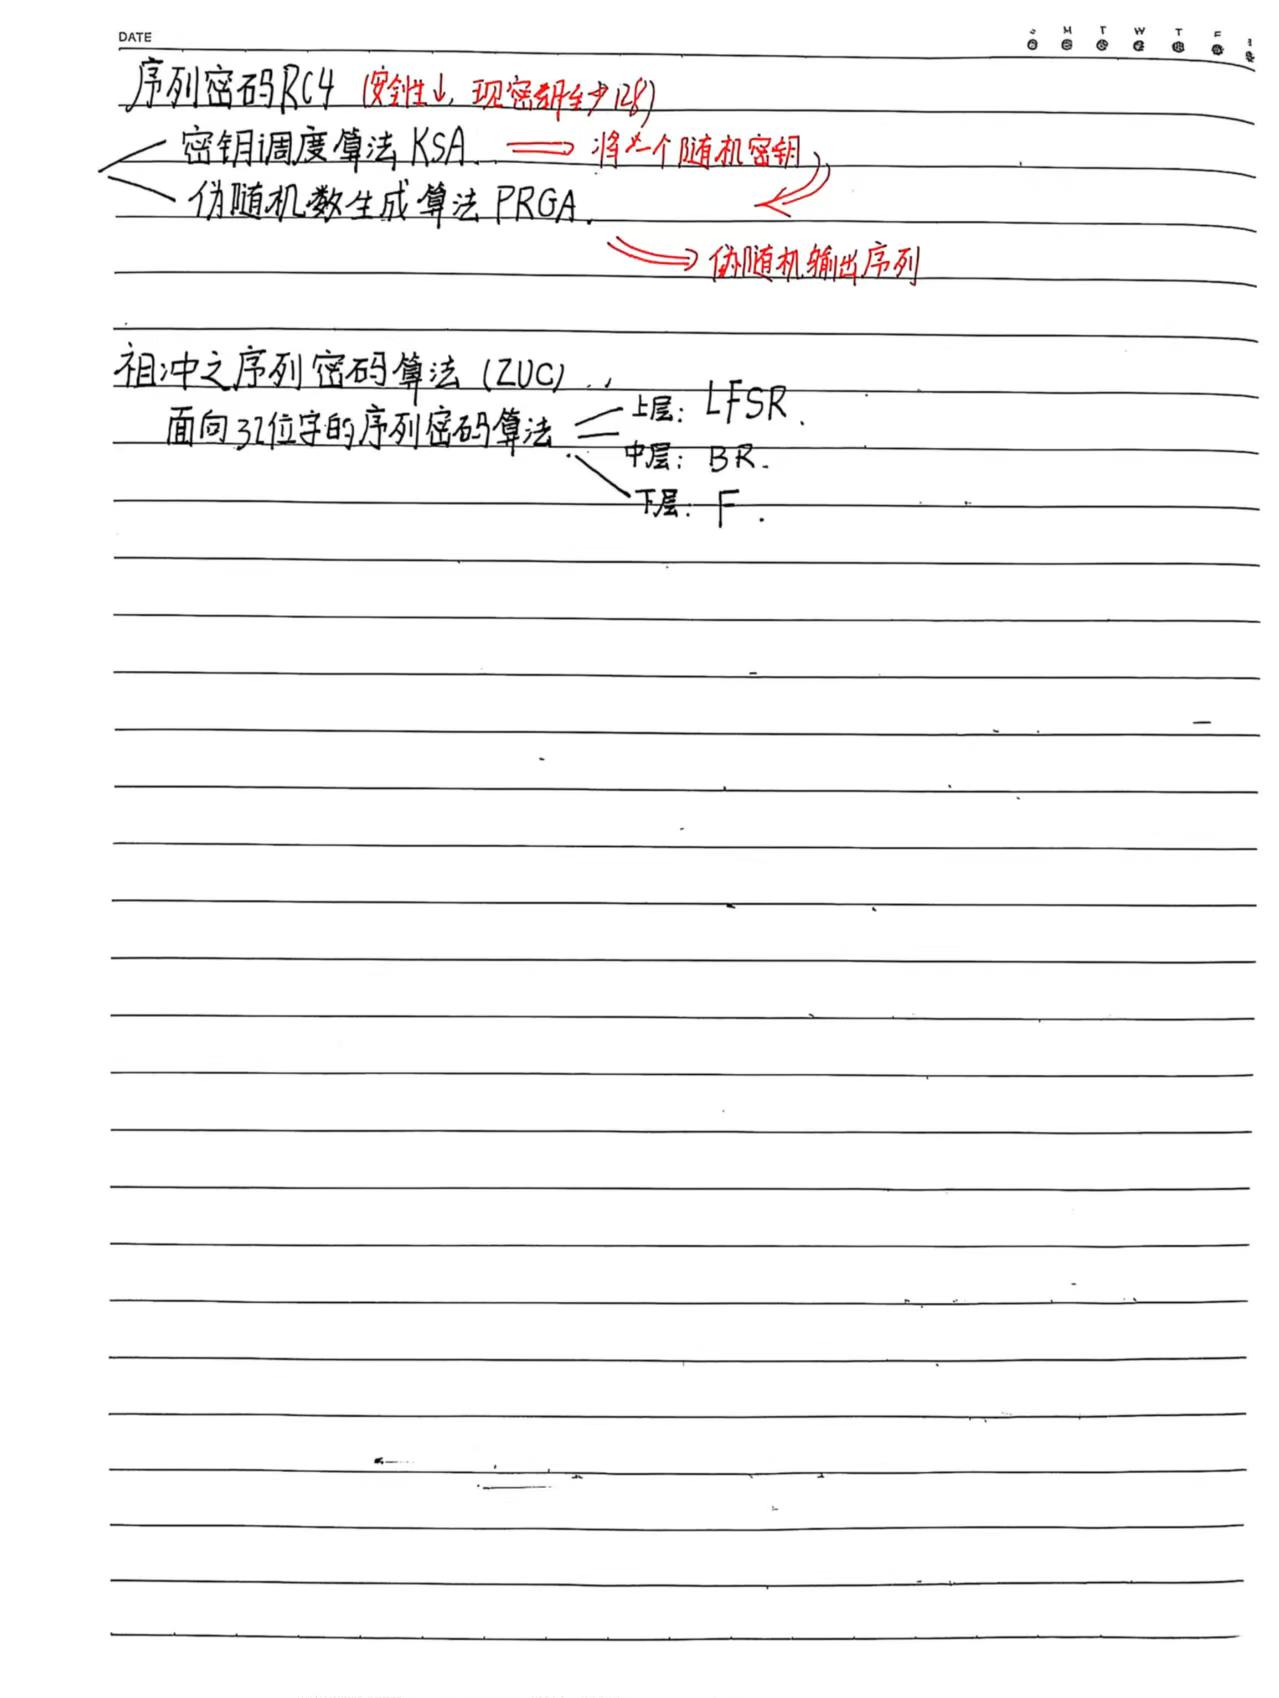 DATE
M T W T F
序列密码RC4 (安全性↓, 现密钥至少128)
密钥调度算法 KSA. ⇒ 将一个随机密钥
伪随机数生成算法 PRGA.
伪随机输出序列
祖冲之序列密码算法 (ZUC)
面向32位字的序列密码算法
上层: LFSR.
中层: BR.
下层: F.